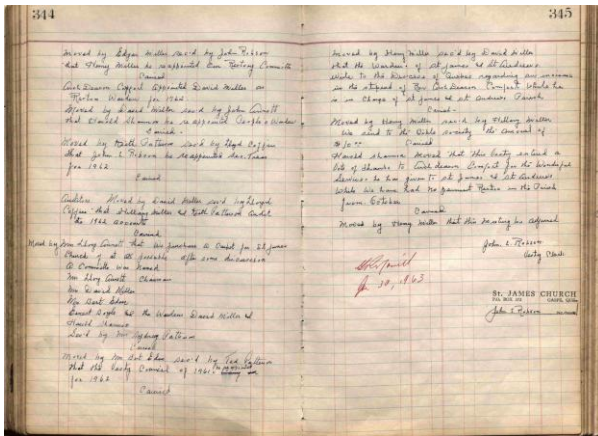 344
Moved by Edgar Miller sec'd by John Robson
that Henry Miller be reappointed Com Rectory Committee
Carried
Arch Deacon Coffart Appointed David Miller as
Rectors Warden for 1962.
Moved by David Miller sec'd by John Annett
that Harold Shannon be reappointed People's Warden
Carried.
Moved by Keith Patterson sec'd by Lloyd Coffin
that John L. Robson be reappointed Sec. Treas
for 1962
Carried
Auditors Moved by David Miller sec'd by Lloyd
Coffin that Miller & Keith Patterson Audit
the 1962 accounts
Carried
Moved by Mrs Lloyd Annett that we purchase a Carpet for St James
Church if at all possible after some discussion
A Committee was Named
Mrs Lloyd Annett Chairman
Mrs David Miller
Mrs Bert Eden
Ernest Boyle & the Wardens David Miller &
Harold Shannon
Sec'd by Mrs Sydney Patterson
Carried
Moved by Mrs Bert Eden sec'd by Ted Patterson
that the Vestry Council of 1961
for 1962
Carried
345
Moved by Henry Miller sec'd by David Miller
that the Wardens of St James & St Andrews
write to the Diocese of Quebec regarding an increase
in the stipend of Rev Arch Deacon while he
is in charge of St James & St Andrews Parish
Carried.
Moved by Henry Miller sec'd by Miller
we send to the Bible Society the amount of
$10.00 Carried
Harold Shannon Moved that this Vestry extend a
Vote of thanks to Arch Deacon for the Wonderful
Services he has given to St James & St Andrews
While we have had no permanent Rector in the Parish
from October
Carried
Moved by Henry Miller that this Meeting be adjourned
John L. Robson
Vestry Clerk
10, 1963
St. JAMES CHURCH
P.O. BOX GASPE, QUE.
John L Robson